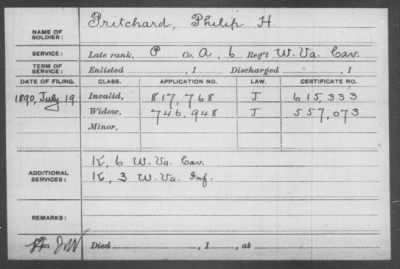 NAME OF SOLDIER: Pritchard, Philip H
SERVICE: Late rank, P Co. A, 6 Reg't W. Va. Cav.
TERM OF SERVICE: Enlisted , 1 Discharged , 1
DATE OF FILING. CLASS. APPLICATION NO. LAW. CERTIFICATE NO.
1890, July 19 Invalid, 817,768 J 615,333
Widow, 746,948 J 557,073
Minor,
ADDITIONAL SERVICES: K, 6 W. Va. Cav.
K, 3 W. Va. Inf.
REMARKS:
Died , 1 , at